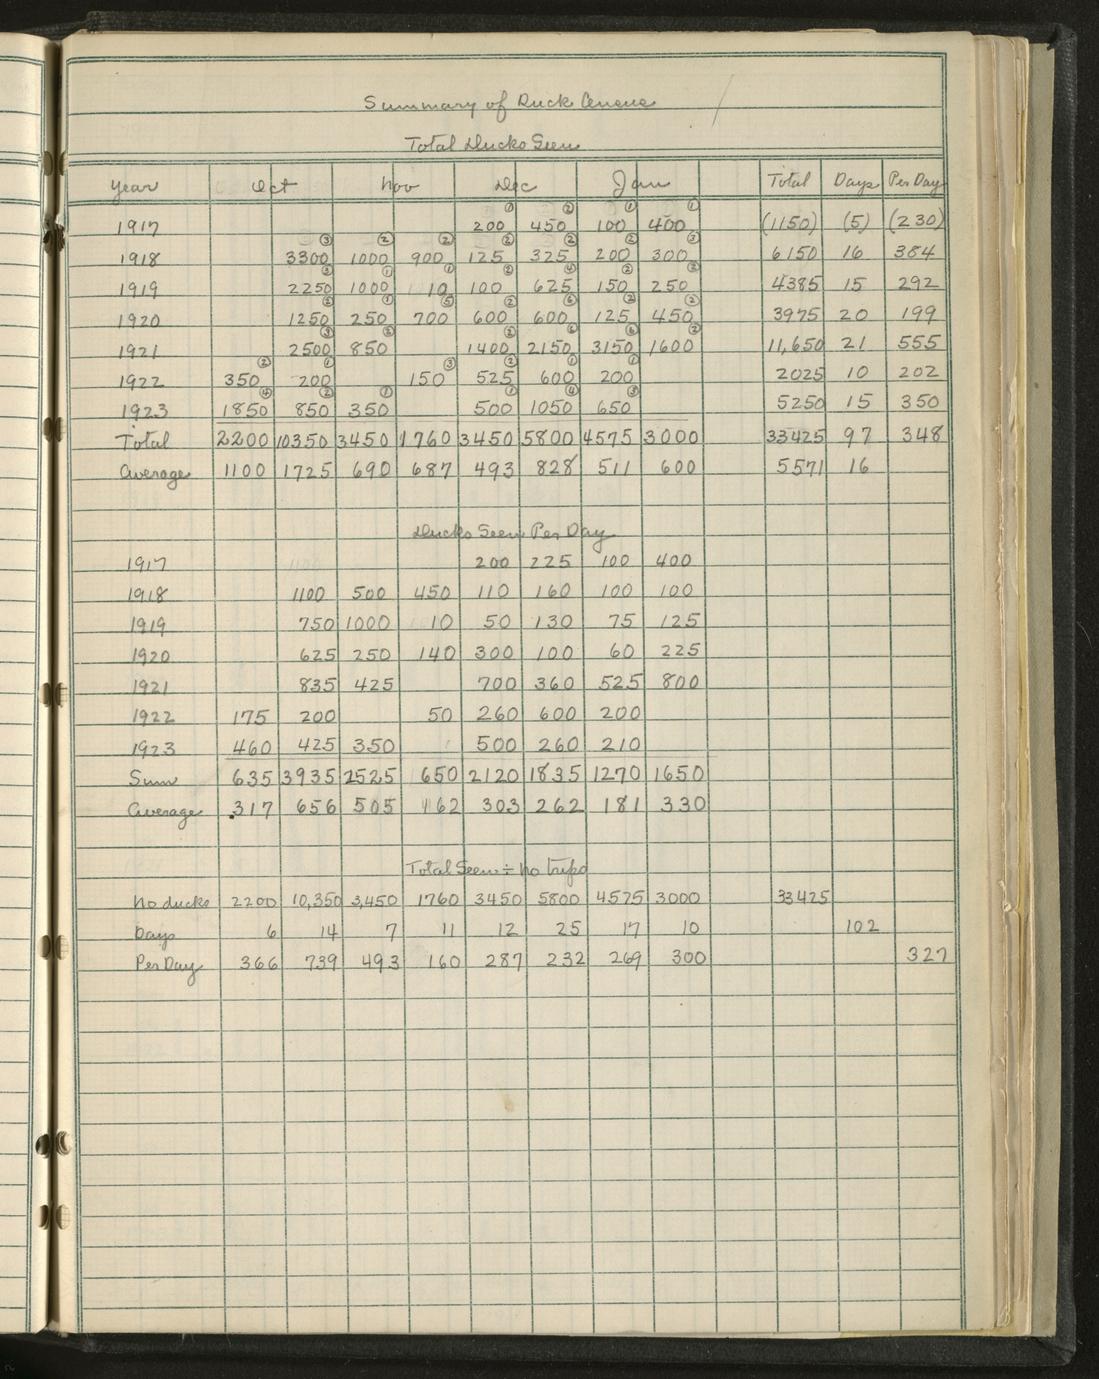 Summary of Duck Census
Total Ducks Seen
Year Oct Nov Dec Jan Total Days Per Day
① ② ① ①
1917 200 450 100 400 (1150) (5) (230)
③ ② ② ② ② ② ③
1918 3300 1000 900 125 325 200 300 6150 16 384
① ① ② ④ ② ②
1919 2250 1000 10 100 625 150 250 4385 15 292
② ① ⑤ ② ⑥ ② ②
1920 1250 250 700 600 600 125 450 3975 20 199
③ ② ② ⑥ ⑥ ②
1921 2500 850 1400 2150 3150 1600 11,650 21 555
② ① ③ ② ① ①
1922 350 200 150 525 600 200 2025 10 202
④ ② ① ① ④ ③
1923 1850 850 350 500 1050 650 5250 15 350
Total 2200 10350 3450 1760 3450 5800 4575 3000 33425 97 348
Average 1100 1725 690 687 493 828 511 600 5571 16
Ducks Seen Per Day
1917 200 225 100 400
1918 1100 500 450 110 160 100 100
1919 750 1000 10 50 130 75 125
1920 625 250 140 300 100 60 225
1921 835 425 700 360 525 800
1922 175 200 50 260 600 200
1923 460 425 350 500 260 210
Sum 635 3935 2525 650 2120 1835 1270 1650
Average 317 656 505 162 303 262 181 330
Total Seen ÷ No trips
No ducks 2200 10,350 3,450 1760 3450 5800 4575 3000 33425
Days 6 14 7 11 12 25 17 10 102
Per Day 366 739 493 160 287 232 269 300 327